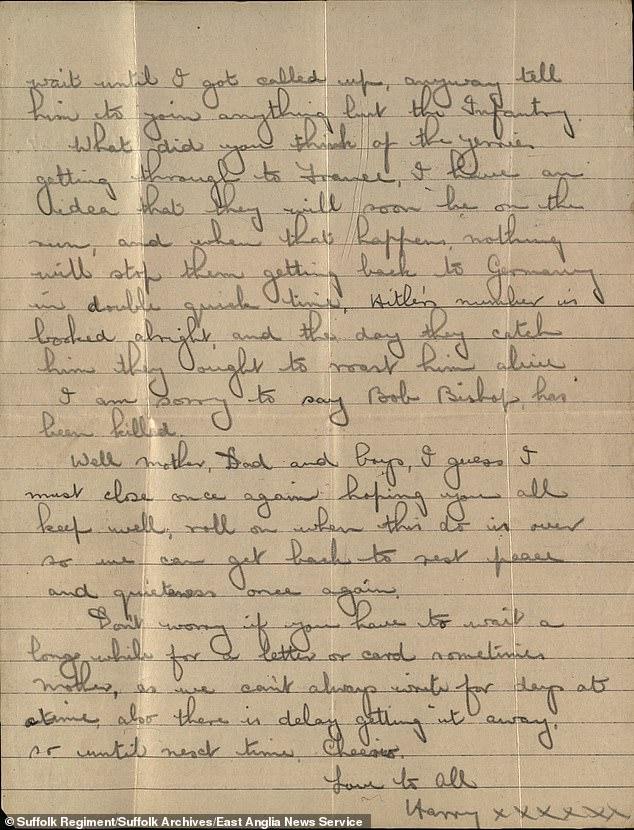 wait until I got called up, anyway tell
him to join anything but the Infantry.
What did you think of the yerries
getting through to France, I have an
idea that they will soon be on the
run, and when that happens, nothing
will stop them getting back to Germany
in double quick time, Hitler's number is
booked alright, and the day they catch
him they ought to roast him alive
I am sorry to say Bob Bishop, has
been killed.
Well mother, Dad and boys, I guess I
must close once again hoping you all
keep well, roll on when this do is over
so we can get back to rest peace
and quieteness once again.
Don't worry if you have to wait a
long while for a letter or card sometimes
mother, as we can't always write for days at
a time, also there is delay getting it away,
so until next time, Cheerio.
Love to All
Harry xxxxxx
©Suffolk Regiment/Suffolk Archives/East Anglia News Service